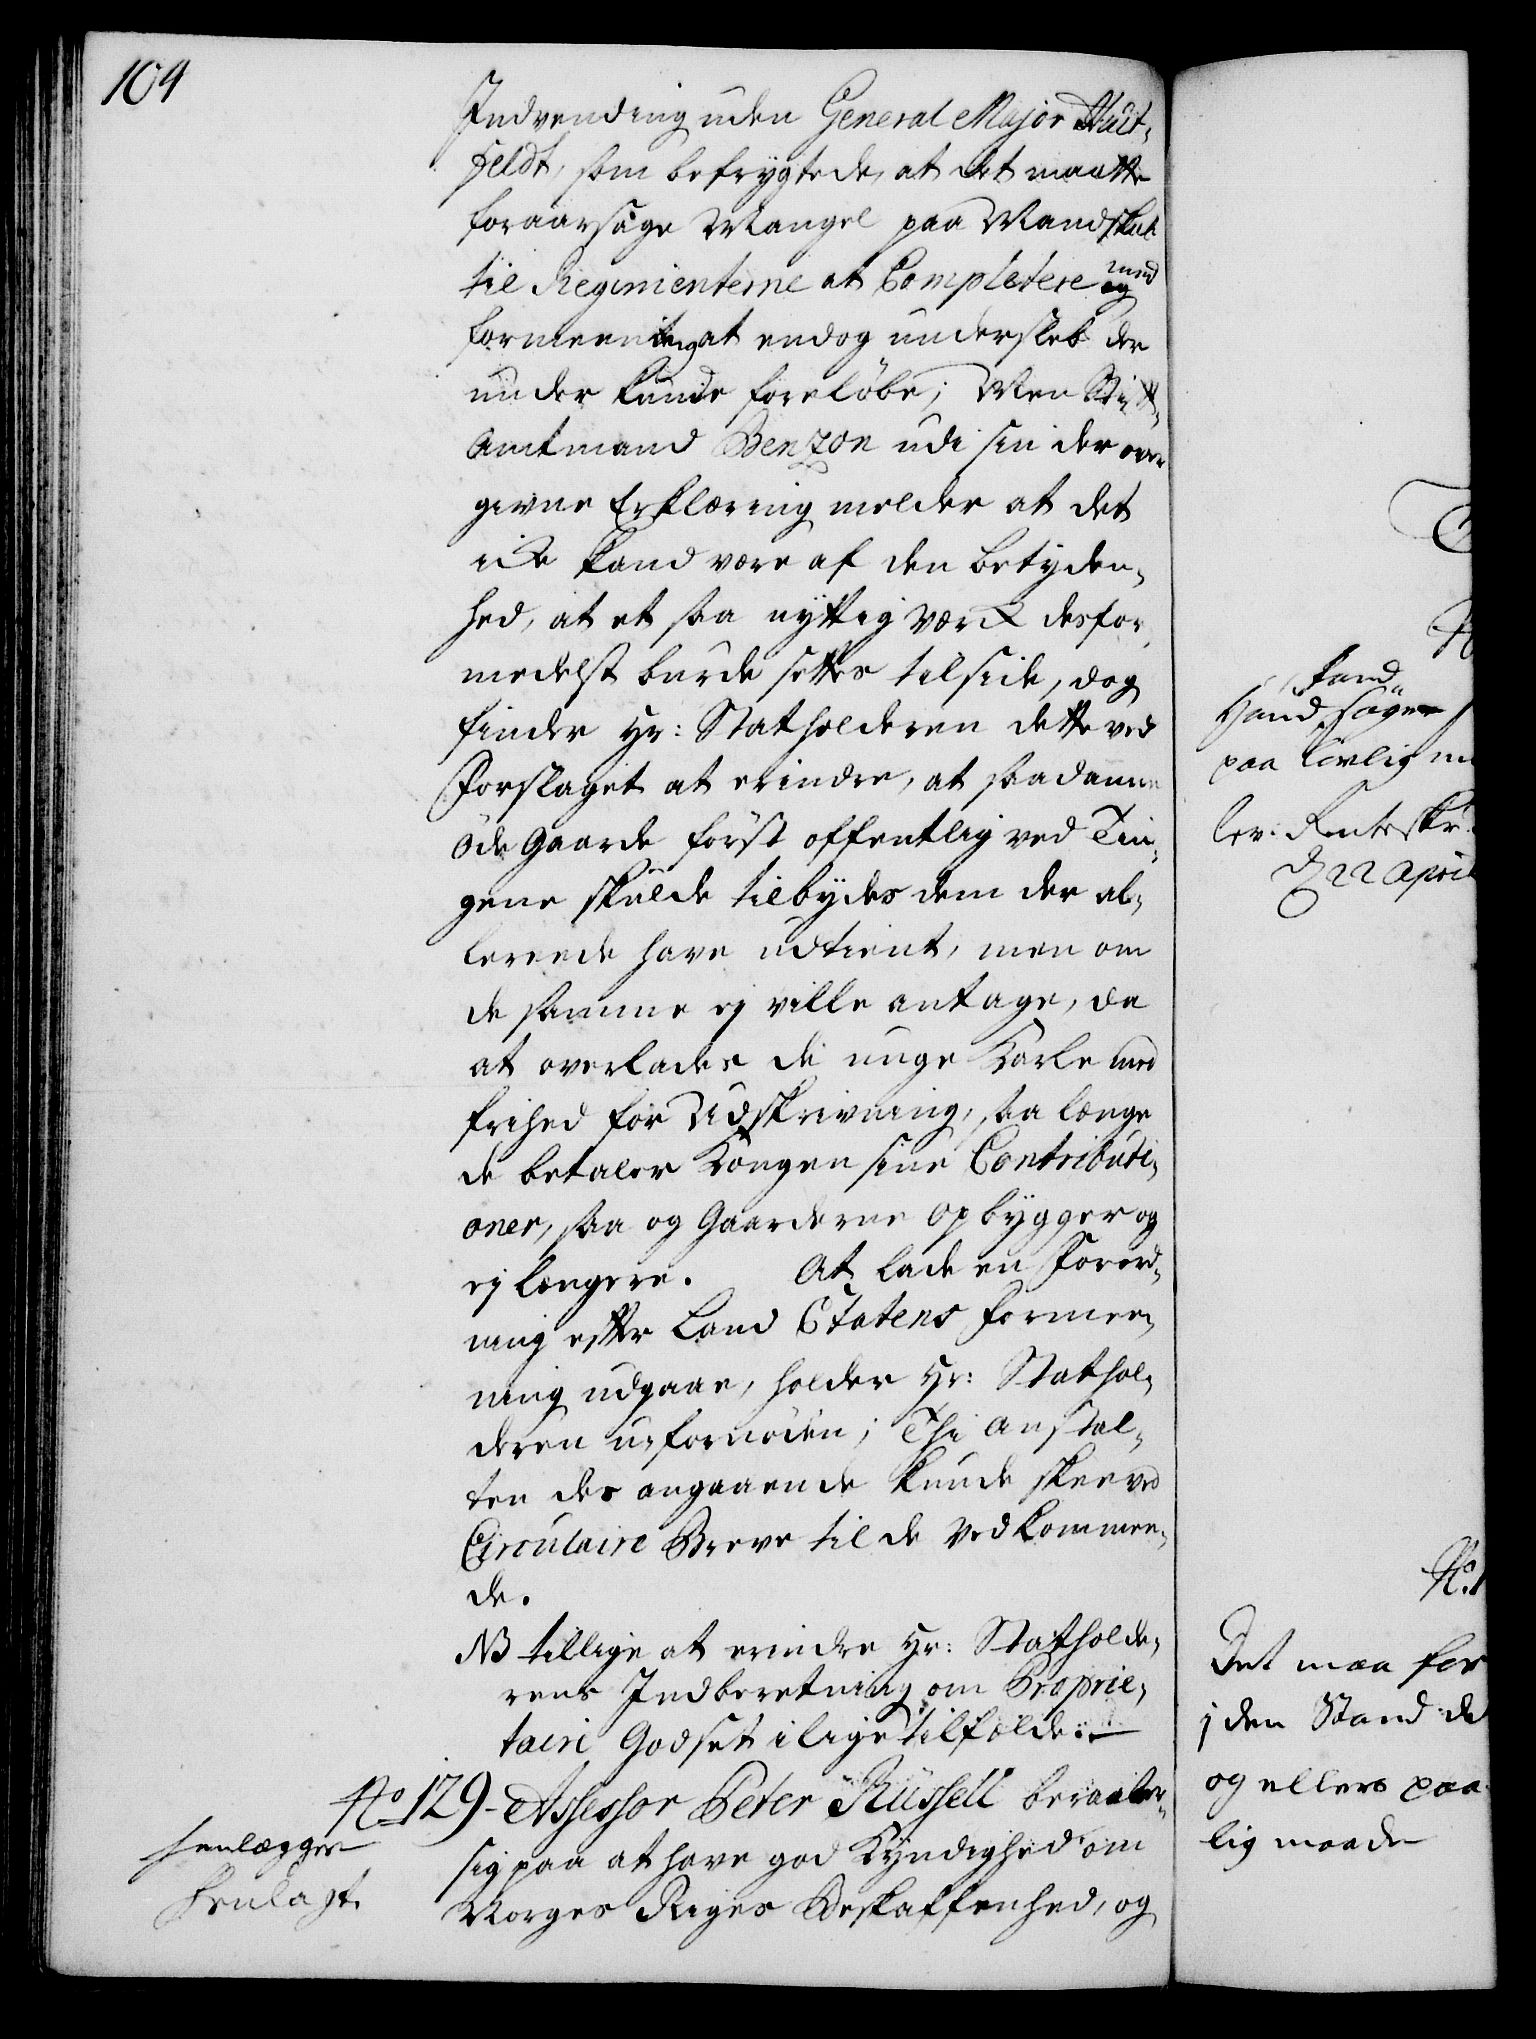 104
Indvending uden General Major Huit-
feldt, som befrygtede, at det maatte
foraarsage Mangel paa Mandskab
til Regimenterne at Completere med
formeening at endog underslæb der
under kunde foreløbe; Men Stift-
amtmand Benzon udi sin der over
givne Erklæring melder at det
icke kand være af den betyden-
hed, at et saa nyttig værck desfor-
medelst burde settes tilside, dog
finder Hr: Statholderen dette ved
Forslaget at erindre, at saadanne
øde Gaarde først offentlig ved Tin-
gene skulde tilbydes dem der al-
lereede have udtient, men om
de samme ej ville antage, da
at overlades de unge Karle med
frihed for Udskrivning, saa længe
de betaler Kongen sine Contributi-
oner, saa og Gaarderne opbygger og
ej længere. At lade en Forord-
ning efter Land Etatens formee-
ning udgaae, holder Hr: Stathol-
deren ufornøden; Thi Anstal-
ten des angaaende kunde skee ved
Circulaire Breve til de Vedkommen-
de.
NB tillige at erindre Hr: Statholde-
rens Indberetning om Proprie-
tairi Godset i lige tilfælde.
No 129 - Assessor Peter Russell beraaber-
sig paa at have god Kyndighed om
Norges Riges Beskaffenhed, og
henlægges
Henlagt.
kand
Hand søge
paa lovlig m
lev: Rentesk:
D 22 April
No. 1
Det maa for
j den Stand de
og ellers paa
lig maade